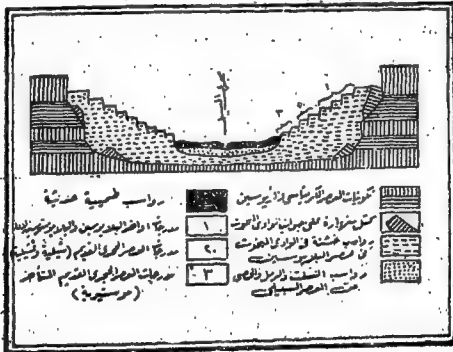 مجرى النيل
١
٢
٣
تكوينات العصر الكريتاسى والأيوسين
كتل منهارة على جوانب الوادى المنحوت
رواسب خشنة فى الوادى المنحوت
فى العصر البلايوسين
رواسب والرمل والحصى
من العصر السبيلى
رواسب طميية حديثة
١ مدرجات أواخر البلايوسين
٢ مدرجات العصر الحجرى القديم (شيلية وأشيلية)
٣ مدرجات العصر الحجرى القديم المتأخر
(موستيرية)